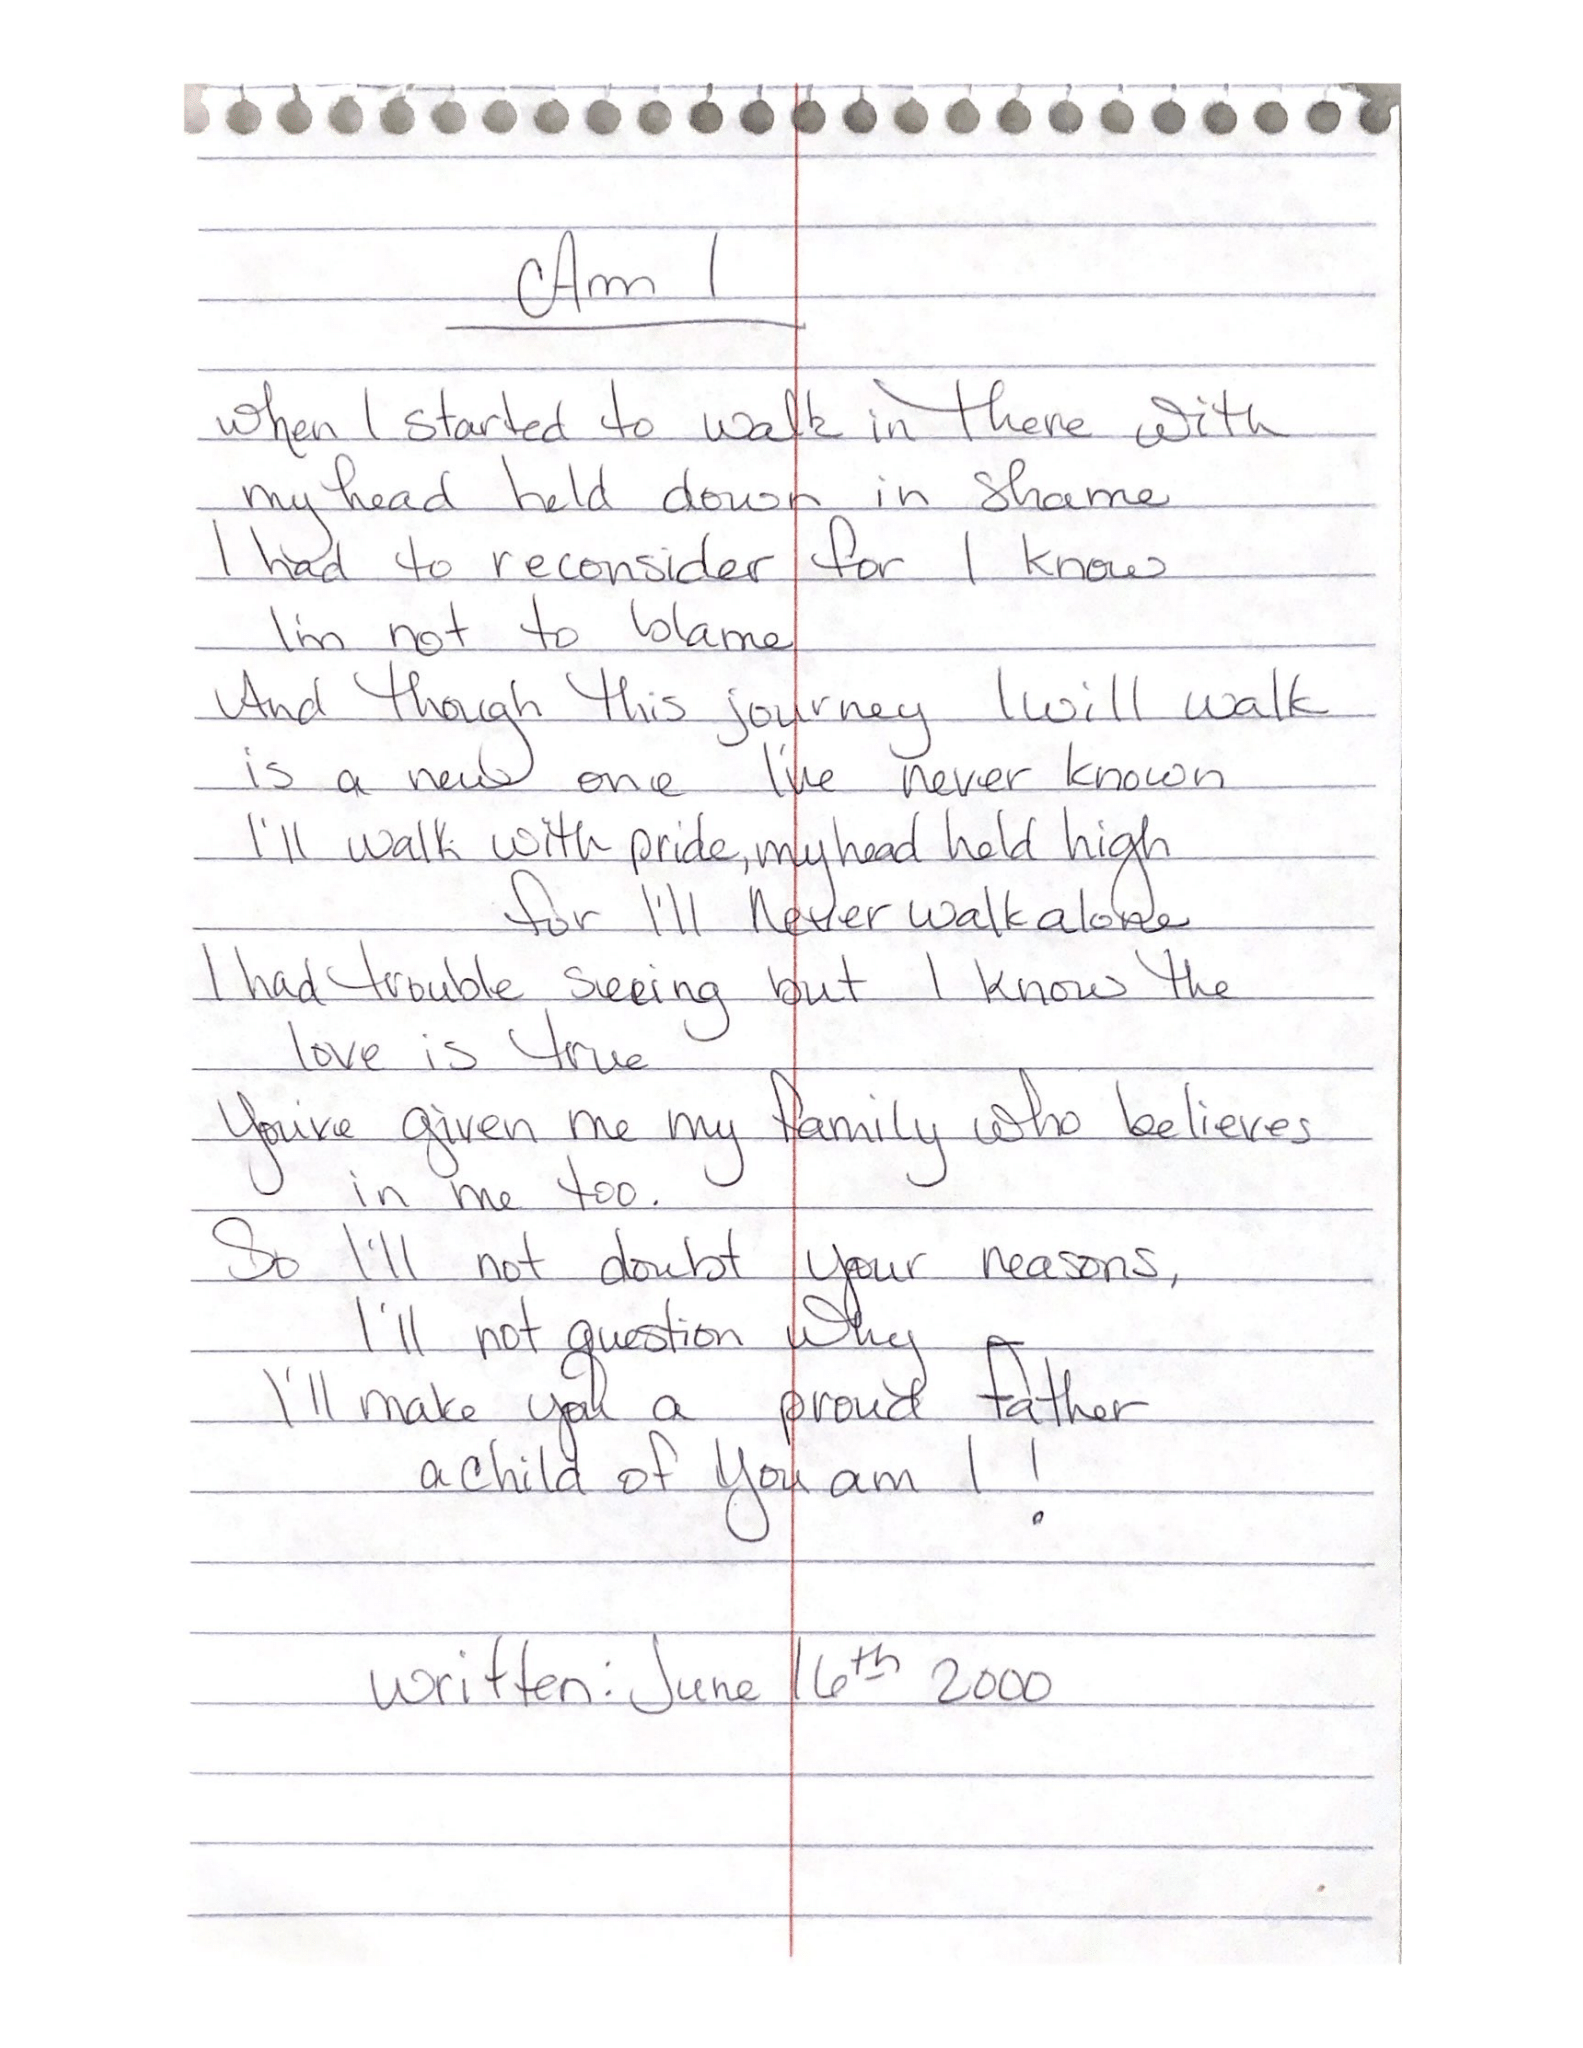 Am I
When I started to walk in there with
my head held down in shame
I had to reconsider for I know
I'm not to blame
And though this journey I will walk
is a new one I've never known
I'll walk with pride, my head held high
for I'll Never walk alone
I had trouble seeing but I know the
love is true
You've given me my family who believes
in me too.
So I'll not doubt your reasons,
I'll not question why
I'll make you a proud father
a child of You am I!
written: June 16th 2000